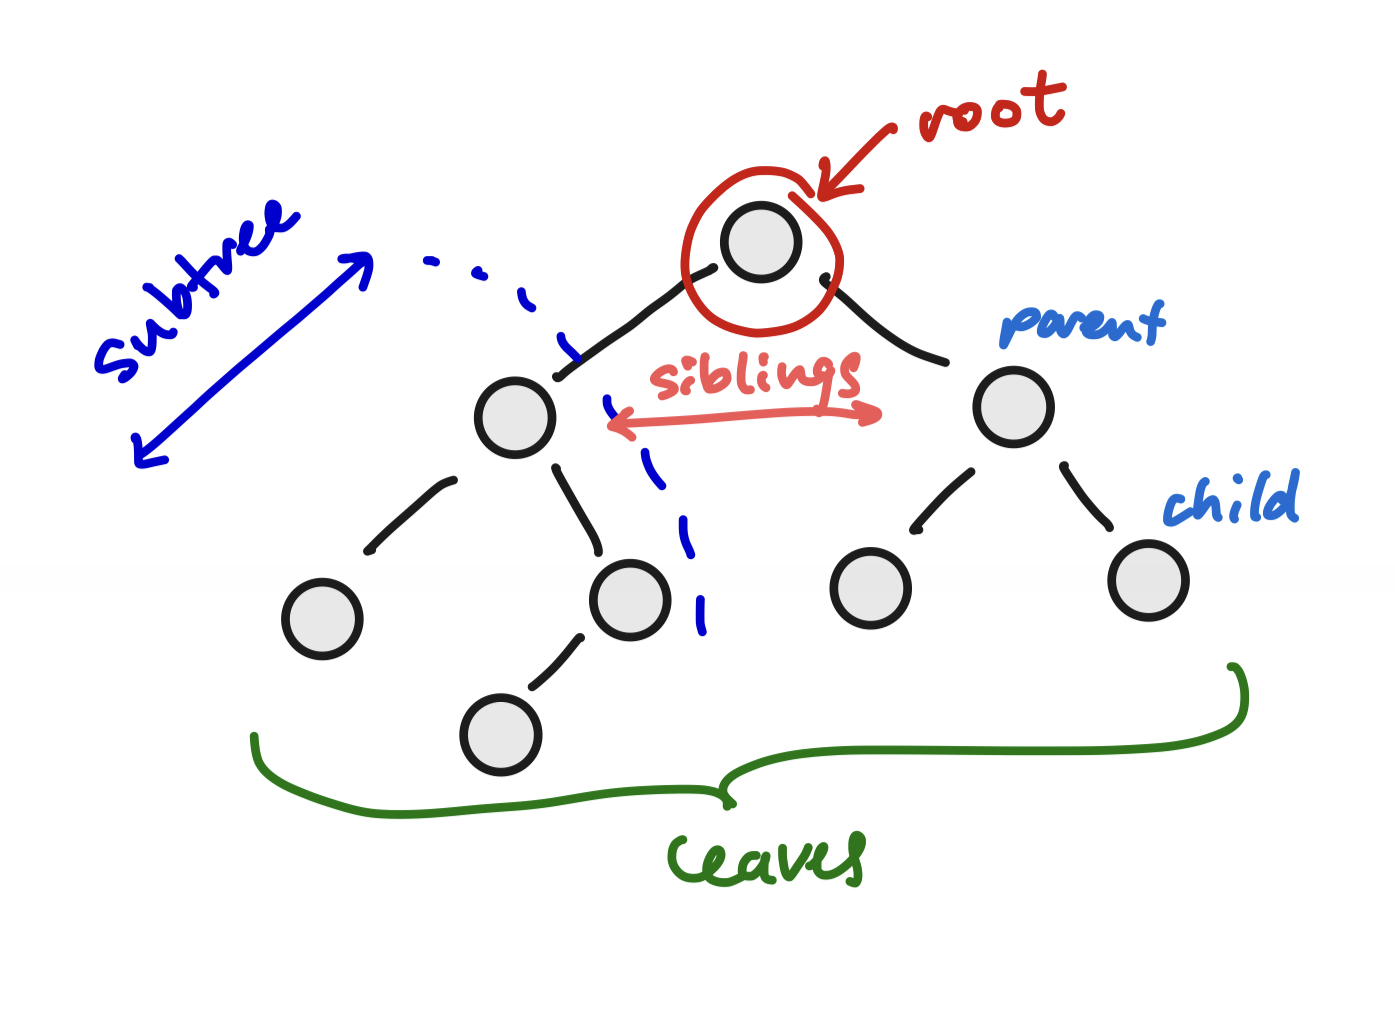 root
subtree
parent
siblings
child
leaves